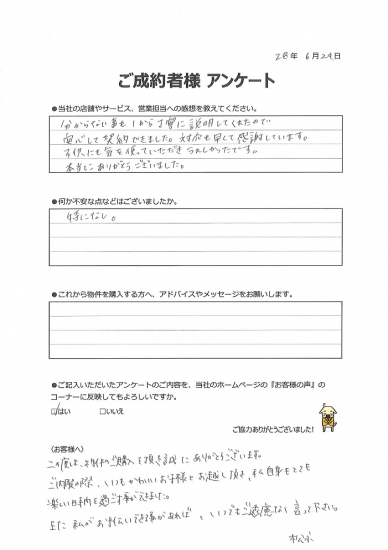 28年 6月24日
ご成約者様 アンケート
●当社の店舗やサービス、営業担当への感想を教えてください。
分からない事も1から丁寧に説明してくれたので
安心して契約できました。対応も早くて感謝しています。
子供にも気を使っていただきうれしかったです。
本当にありがとうございました。
●何か不安な点などはございましたか。
特になし。
●これから物件を購入する方へ、アドバイスやメッセージをお願いします。
●ご記入いただいたアンケートのご内容を、当社のホームページの『お客様の声』の
コーナーに反映してもよろしいですか。
☑はい □いいえ
ご協力ありがとうございました!
〈お客様へ〉
この度は、お物件のご購入を頂き誠にありがとうございます。
ご内覧の際、いつもかわいいお子様とお越し頂き、私自身もとても
楽しい時間を過ごす事ができました。
また私がお手伝いできる事があれば、いつでもご遠慮なく言って下さい。